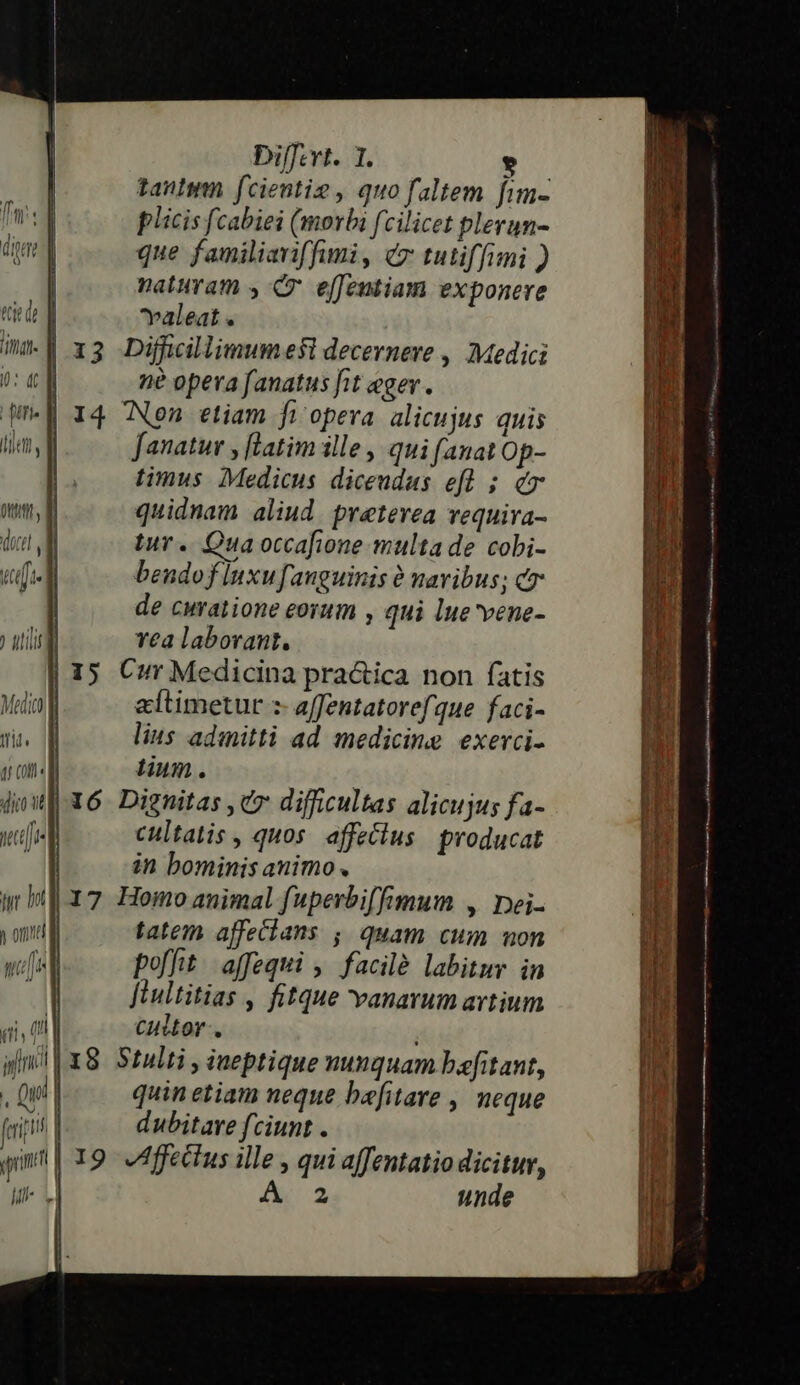 Differt. I.
tantum ſcientiæ, quo ſaltem ſim-
plicis ſcabiei (morbi ſcilicet plerun-
que familiariſſimi, & tutiſſimi)
naturam, & eſſentiam exponere
valeat.
13 Difficillimum eſt decernere, Medici
nè opera ſanatus ſit æger.
14 Non etiam ſi opera alicujus quis
ſanatur, ſtatim ille, qui ſanat Op-
timus Medicus dicendus eſt; &
quidnam aliud præterea requira-
tur. Qua occaſione multa de cohi-
bendo fluxu ſanguinis è naribus; &
de curatione eorum, qui lue vene-
rea laborant.
15 Cur Medicina practica non ſatis
æſtimetur: aſſentatoreſque faci-
lius admitti ad medicinæ exerci-
tium.
16 Dignitas, & difficultas alicujus fa-
cultatis, quos affectus producat
in hominis animo.
17 Homo animal ſuperbiſſimum, Dei-
tatem affectans; quam cum non
poſſit aſſequi, facilè labitur in
ſtultitias, fitque vanarum artium
cultor.
18 Stulti, ineptique nunquam hæſitant,
quin etiam neque hæſitare, neque
dubitare ſciunt.
19 Affectus ille, qui aſſentatio dicitur,
A 2 unde